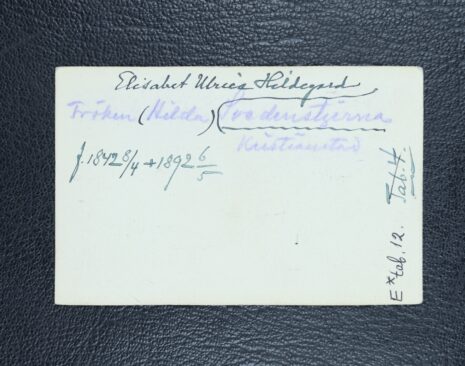 Elisabet Ulrica Hildegard
Fröken (Hilda)
Kristianstad
f. 1842 8/4 + 1892 6/5
Tab. 4.
E * tab. 12.